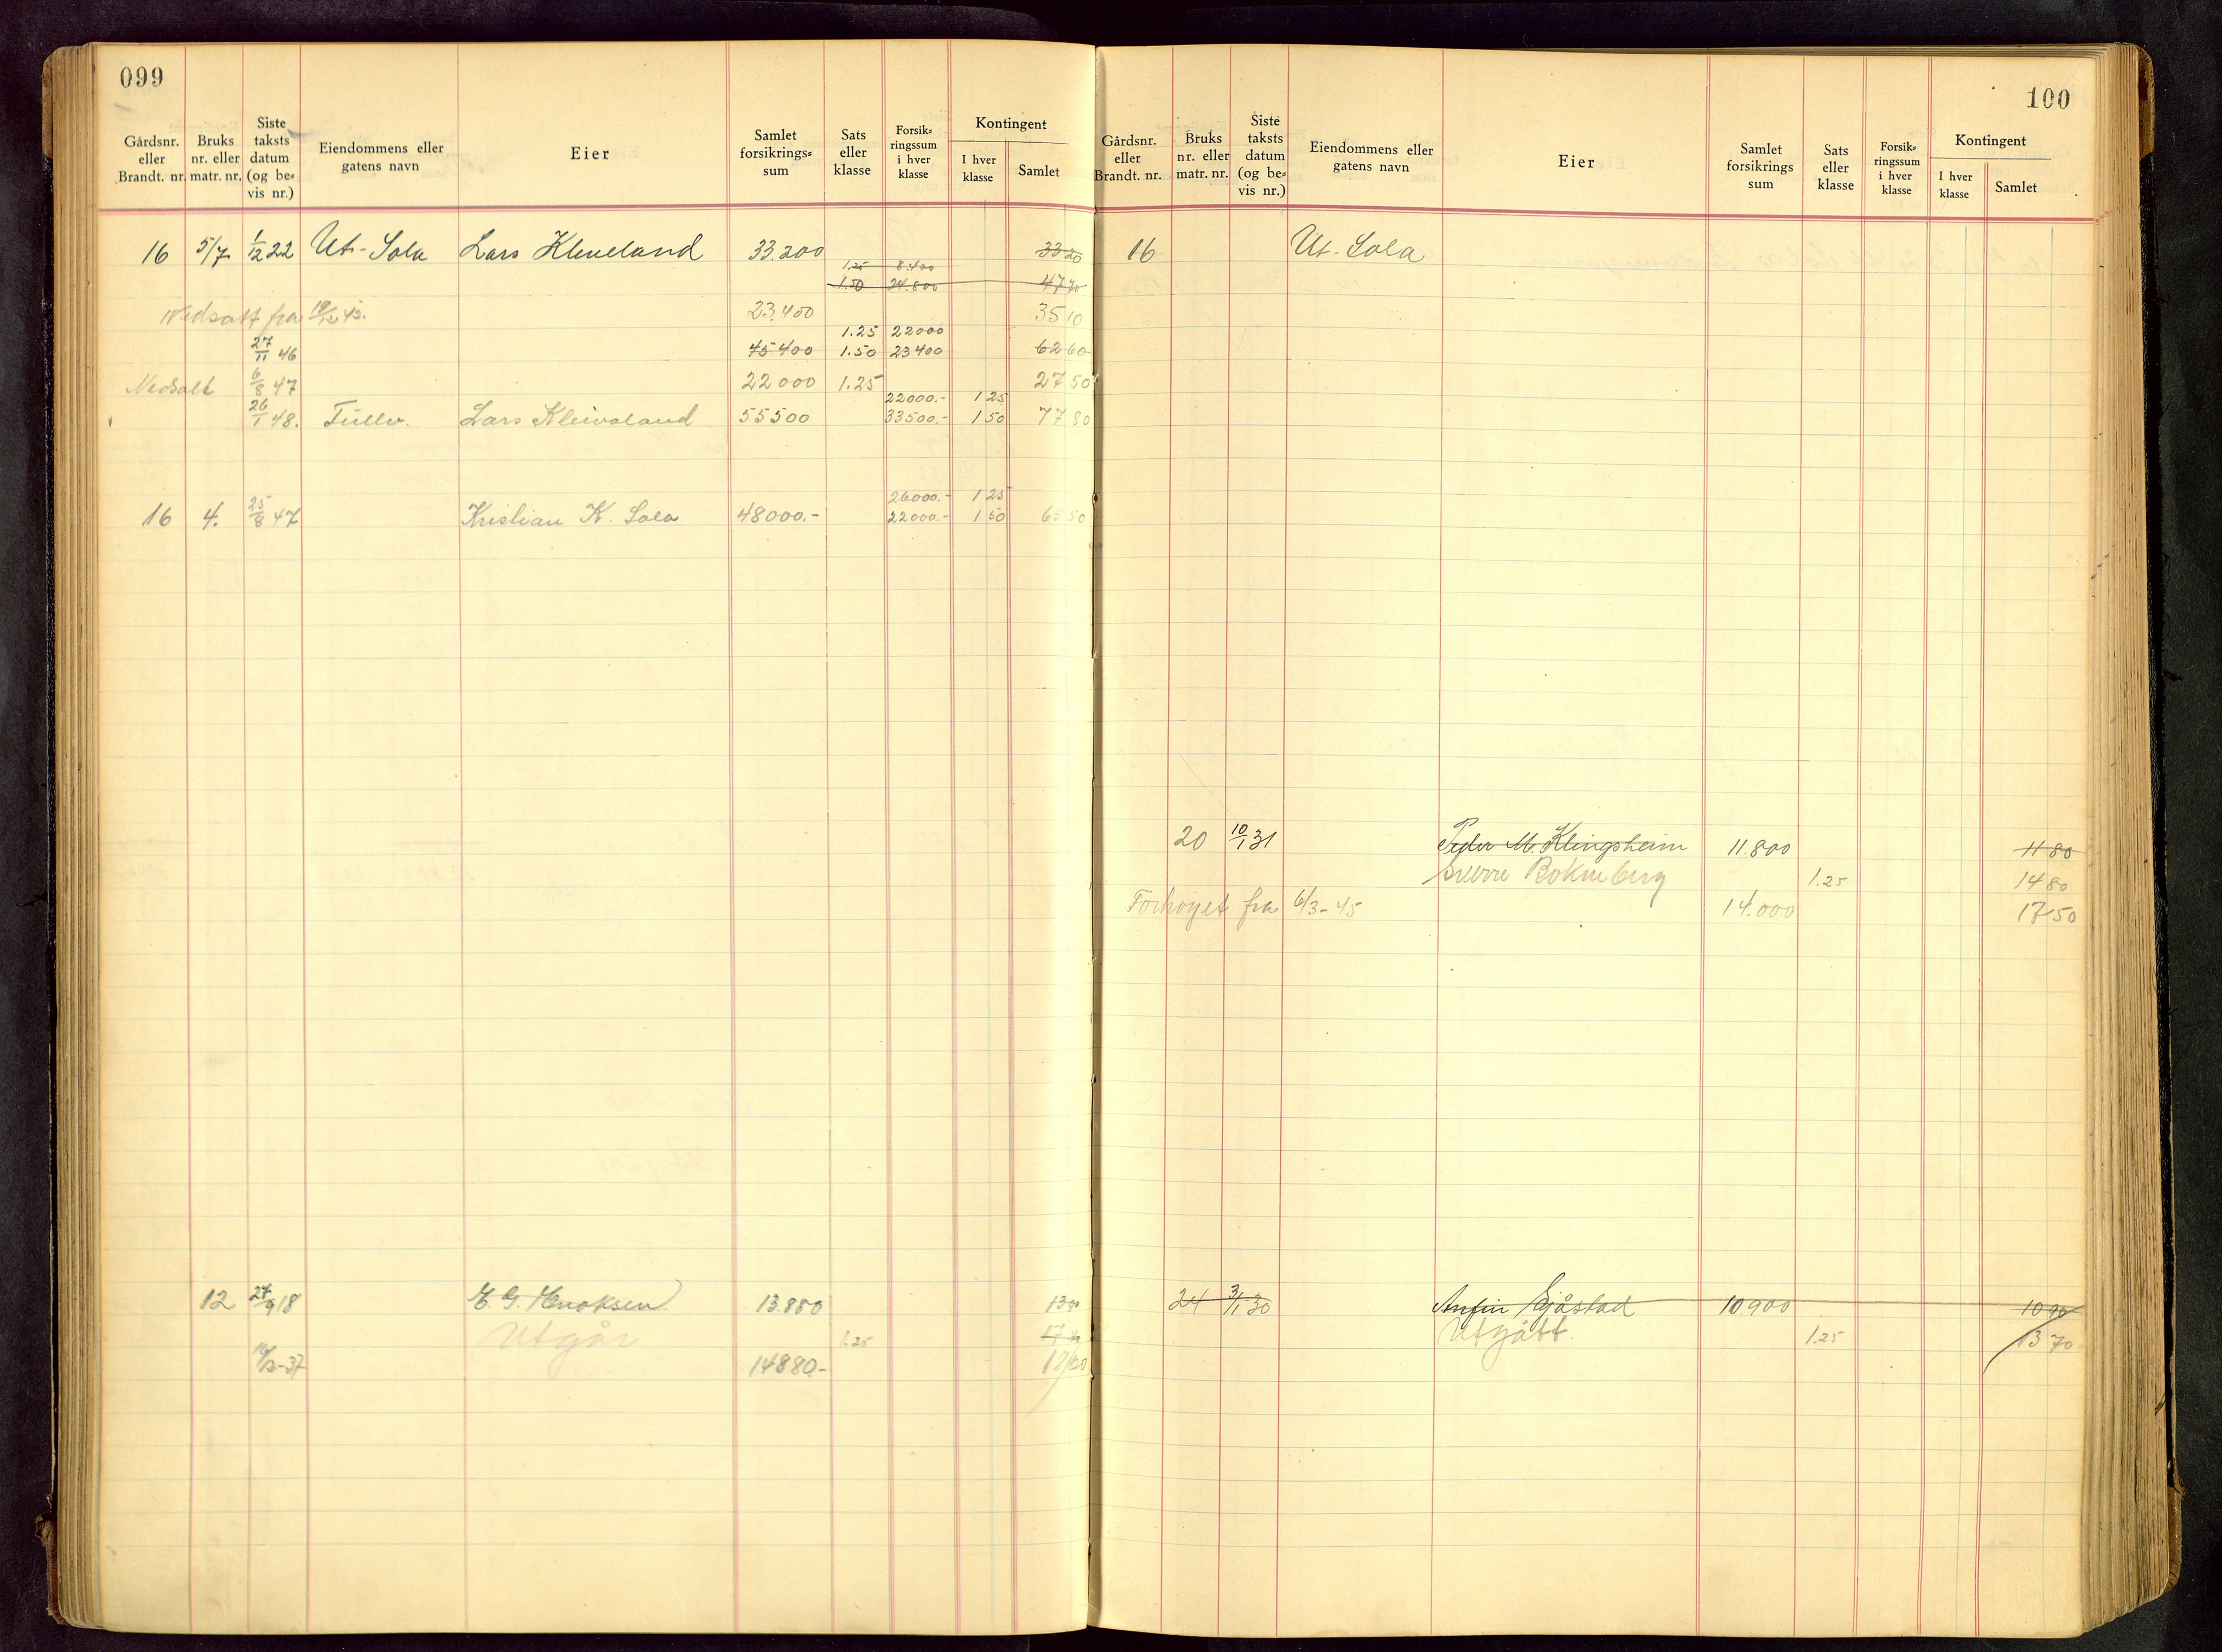 099
Gårdsnr. eller Brandt. nr. Bruks nr. eller matr. nr. Siste taksts datum (og be= vis nr.) Eiendommens eller gatens navn Eier Samlet forsikrings= sum Sats eller klasse Forsik= ringssum i hver klasse Kontingent I hver klasse Samlet
16 5/7 1/12 22 Ut-Sola Lars Kleveland 33.200 33 20
1.25 8.400
1.50 24.800 47 70
Nedsatt fra 19/12 42. 23.400 35 10
1.25 22000
27/11 46 45400 1.50 23400 62 60
Nedsatt 6/8 47 22000 1.25 27 50
22000.- 1 25
26/1 48. Fullv. Lars Kleivaland 55500 33500.- 1 50 77 80
26000.- 1 25
16 4. 25/8 47 Kristian K. Sola 48000.- 22000.- 1 50 65 50
12 27/9 18 E. G. Enoksen 13.880 13 90
Utgår 1.25 17 40
14880.- 18 60
100
Gårdsnr. eller Brandt. nr. Bruks nr. eller matr. nr. Siste taksts datum (og be= vis nr.) Eiendommens eller gatens navn Eier Samlet forsikrings sum Sats eller klasse Forsik= ringssum i hver klasse Kontingent I hver klasse Samlet
16 Ut-Sola
20 10/1 31 Peder M. Klingsheim 11.800 11 80
Sverre Bokneberg 1.25 14 80
Forhøyet fra 6/3-45 14.000 17 50
24 3/1 30 Anfin Gjåstad 10900 10 90
Utgått. 1.25 13 70